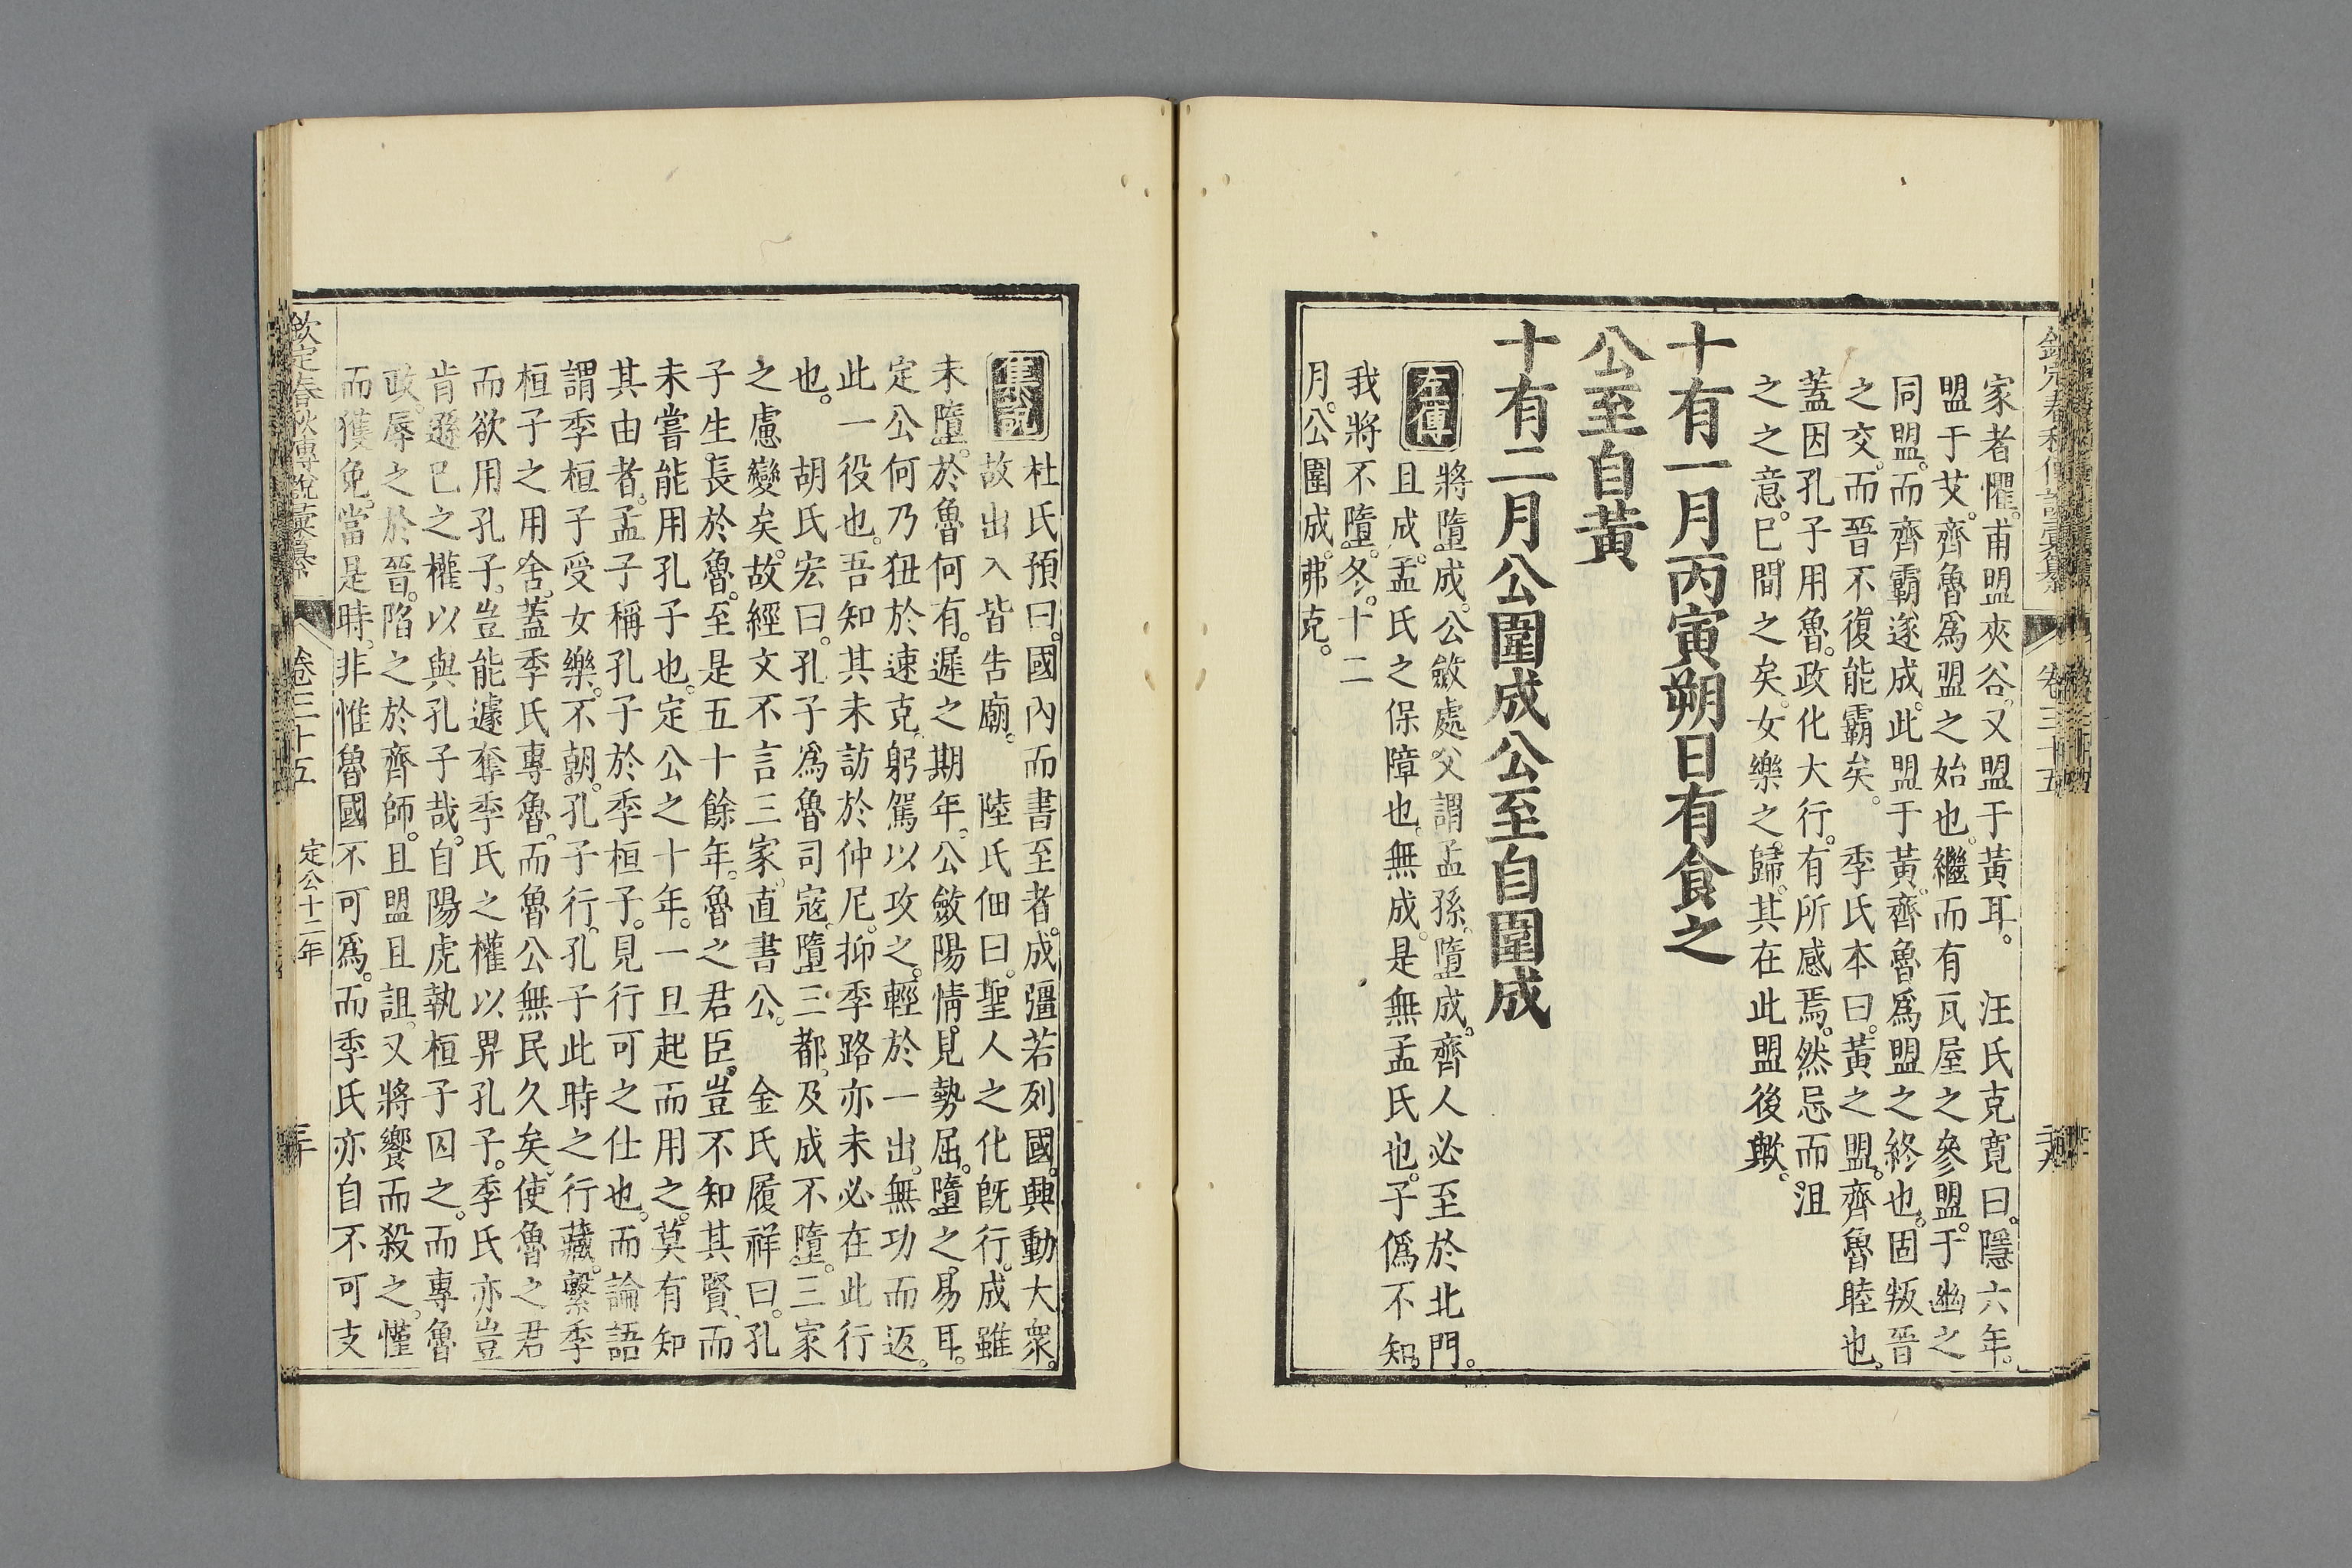 家者懼。甫盟夾谷。又盟于黃耳。　汪氏克寬曰。隱六年。
盟于艾。齊魯爲盟之始也。繼而有瓦屋之參盟。于幽之
同盟。而齊霸遂成。此盟于黃。齊魯爲盟之終也。固叛晉
之交。而晉不復能霸矣。　季氏本曰。黃之盟。齊魯睦也。
蓋因孔子用魯。政化大行。有所感焉。然忌而沮
之之意。已間之矣。女樂之歸。其在此盟後歟。
十有一月丙寅朔日有食之
公至自黃
十有二月公圍成公至自圍成
左傳
將墮成。公斂處父謂孟孫。墮成。齊人必至於北門。
且成。孟氏之保障也。無成。是無孟氏也。子僞不知。
我將不墮。冬。十二
月。公圍成。弗克。
集說
杜氏預曰。國內而書至者。成彊若列國。興動大衆。
故出入皆告廟。　陸氏佃曰。聖人之化旣行。成雖
未墮。於魯何有。遲之期年。公斂陽情見勢屈。墮之易耳。
定公何乃狃於速克。躬駕以攻之。輕於一出。無功而返。
此一役也。吾知其未訪於仲尼。抑季路亦未必在此行
也。　胡氏宏曰。孔子爲魯司寇。墮三都。及成不墮。三家
之慮變矣。故經文不言三家。直書公。　金氏履祥曰。孔
子生長於魯。至是五十餘年。魯之君臣。豈不知其賢。而
未嘗能用孔子也。定公之十年。一旦起而用之。莫有知
其由者。孟子稱孔子於季桓子。見行可之仕也。而論語
謂季桓子受女樂。不朝。孔子行。孔子此時之行藏。繫季
桓子之用舍。蓋季氏專魯。而魯公無民久矣。使魯之君
而欲用孔子。豈能遽奪季氏之權以畀孔子。季氏亦豈
肯遜已之權以與孔子哉。自陽虎執桓子囚之。而專魯
政。辱之於晉。陷之於齊師。且盟且詛。又將饗而殺之。僅
而獲免。當是時。非惟魯國不可爲。而季氏亦自不可支
欽定春秋傳說彙纂
卷三十五
定公十二年
三十